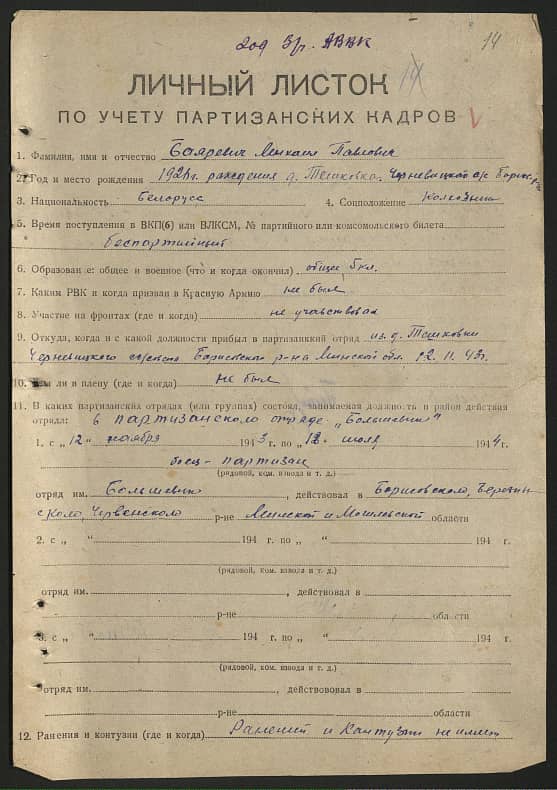 14
ЛИЧНЫЙ ЛИСТОК
ПО УЧЕТУ ПАРТИЗАНСКИХ КАДРОВ
1. Фамилия, имя и отчество Бояревич Михаил Павлович
2. Год и место рождения 1928г. рождения д. Тешковка Черневицкого с/с Борис.
3. Национальность белорусс 4. Соцположение Колхозник
5. Время поступления в ВКП(б) или ВЛКСМ, № партийного или комсомольского билета
беспартийный
6. Образование: общее и военное (что и когда окончил) общее 5кл.
7. Каким РВК и когда призван в Красную Армию не был
8. Участие на фронтах (где и когда) не участвовал
9. Откуда, когда и с какой должности прибыл в партизанский отряд из д. Тешковки
Черневицкого с/совета Борисовского р-на Минской обл. 12. 11. 43г.
10. Был ли в плену (где и когда) не был
11. В каких партизанских отрядах (или группах) состоял, занимаемая должность и район действия
отряда: в партизанском отряде „Большевик"
1. с „12" ноября 1943 г. по „12" июля 1944 г.
боец-партизан
(рядовой, ком. взвода и т. д.)
отряд им. Большевик, действовал в Борисовского, Березин
ского, Червенского р-не Минской и Могилевской области
2. с „ " 194 г. по „ " 194 г.
(рядовой, ком. взвода и т. д.)
отряд им. , действовал в
р-не области
3. с „ " 194 г. по „ " 194 г.
(рядовой, ком. взвода и т. д.)
отряд им. , действовал в
р-не области
12. Ранения и контузии (где и когда) Ранений и Контузий не имеет